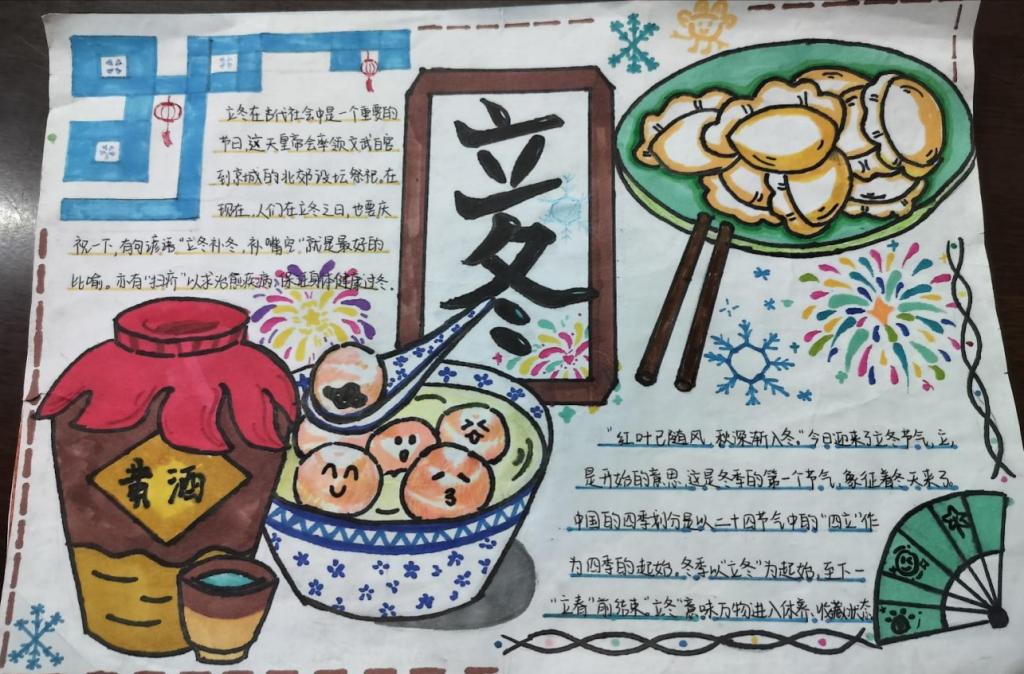 立冬在古代社会中是一个重要的
节日,这天皇帝会率领文武百官
到京城的北郊设坛祭祀。在
现在,人们在立冬之日,也要庆
祝一下,有句谚语“立冬补冬,补嘴空”就是最好的
比喻。亦有“扫疥”以求治愈疾病,保证身体健康过冬.
立冬
黄酒
“红叶已随风,秋深渐入冬.”今日迎来了立冬节气,立,
是开始的意思.这是冬季的第一个节气,象征着冬天来了.
中国的四季划分是以二十四节气中的“四立”作
为四季的起始.冬季以“立冬”为起始,至下一
“立春”前结束“立冬”意味万物进入休养、收藏状态.